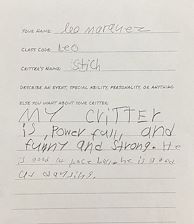 YOUR NAME: leo marquez
CLASS CODE: Leo
CRITTER'S NAME: Stich
DESCRIBE AN EVENT, SPECIAL ABILITY, PERSONALITY, OR ANYTHING
ELSE YOU WANT ABOUT YOUR CRITTER:
MY CRITTER
is, Power full, and
funny and strong. He
is good at he is good